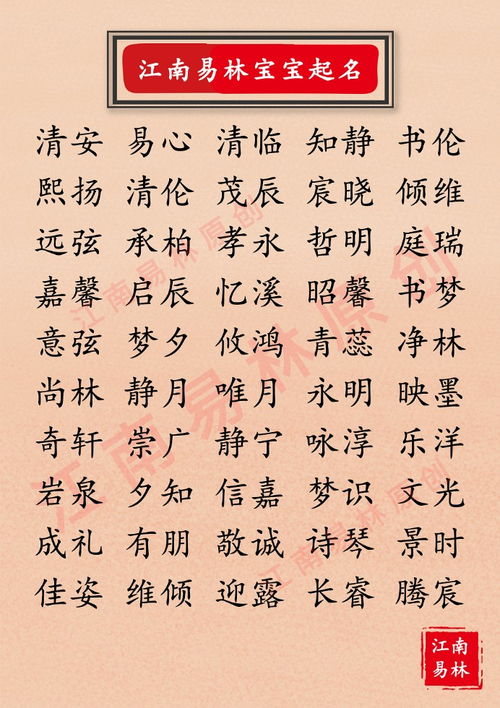 江南易林宝宝起名
清安 易心 清临 知静 书伦
熙扬 清伦 茂辰 宸晓 倾维
远弦 承柏 孝永 哲明 庭瑞
嘉馨 启辰 忆溪 昭馨 书梦
意弦 梦夕 攸鸿 青蕊 净林
尚林 静月 唯月 永明 映墨
奇轩 崇广 静宁 咏淳 乐洋
岩泉 夕知 信嘉 梦识 文光
成礼 有朋 敬诚 诗琴 景时
佳姿 维倾 迎露 长睿 腾宸
江南易林原创
江南易林原创
江南易林原创
江南
易林